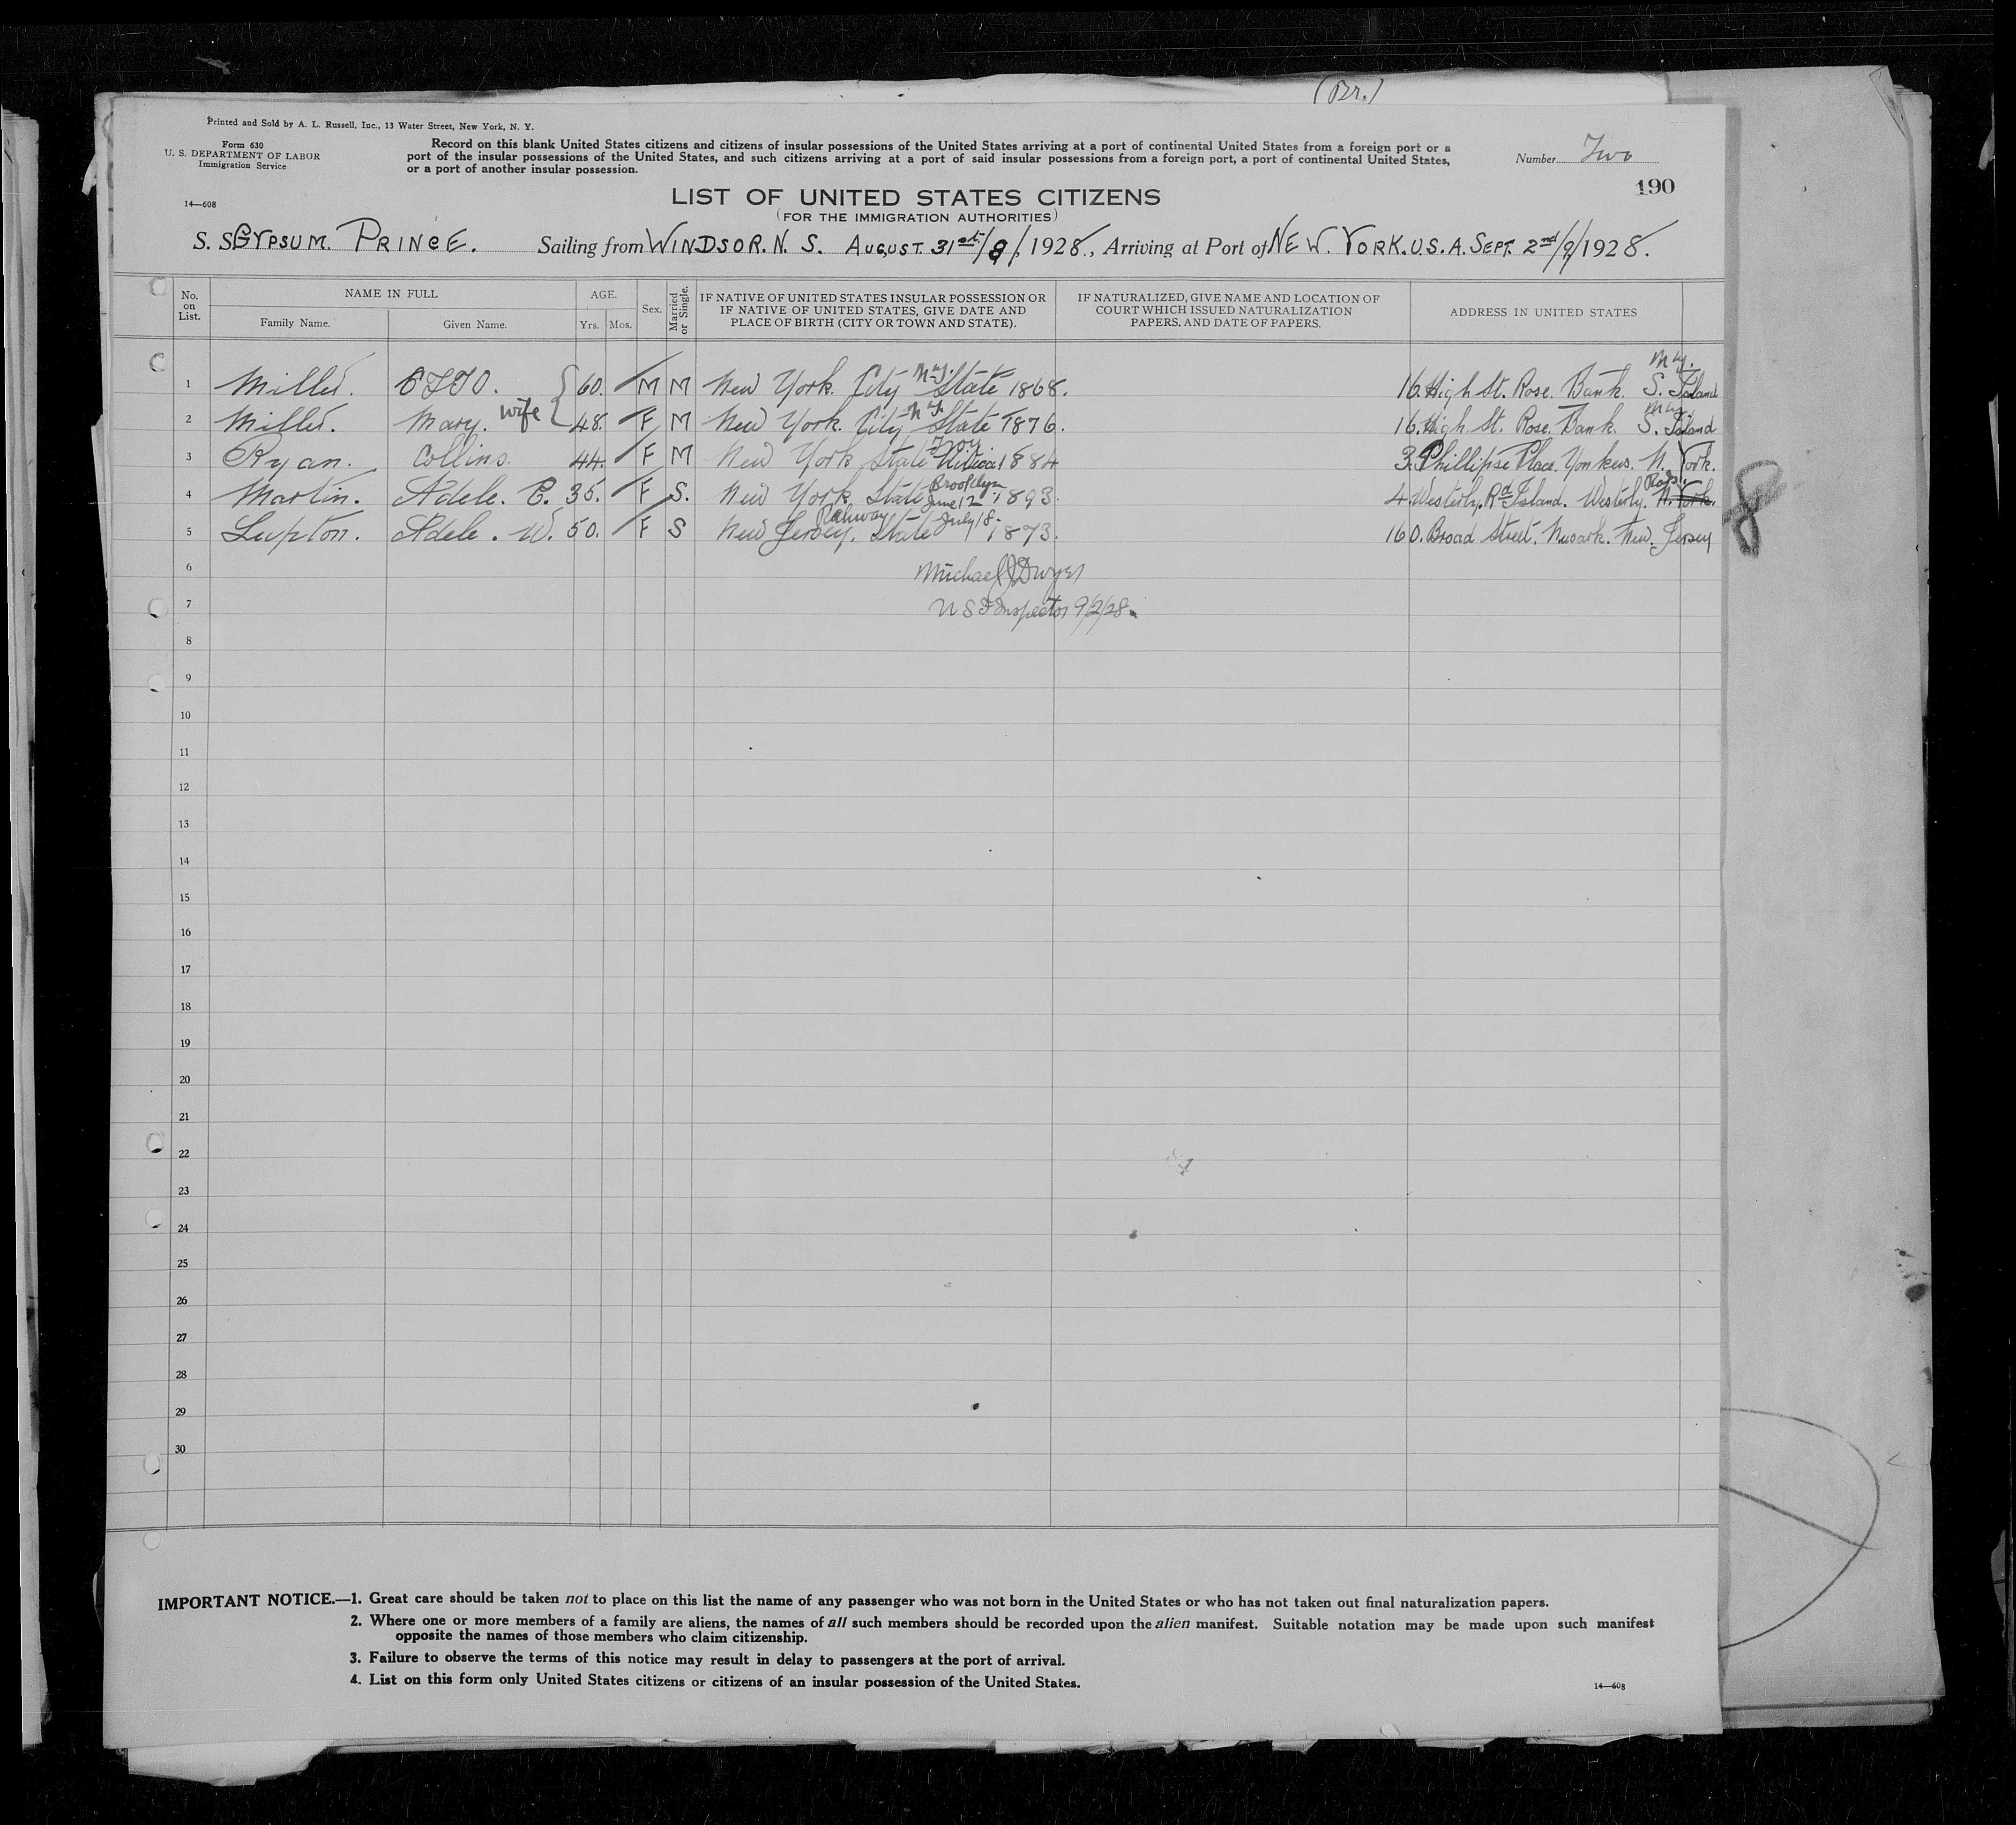 (Br.)
Printed and Sold by A. L. Russell, Inc., 13 Water Street, New York, N. Y.
Form 630
U. S. DEPARTMENT OF LABOR
Immigration Service
Record on this blank United States citizens and citizens of insular possessions of the United States arriving at a port of continental United States from a foreign port or a
port of the insular possessions of the United States, and such citizens arriving at a port of said insular possessions from a foreign port, a port of continental United States,
or a port of another insular possession.
Number Two
190
14—608
LIST OF UNITED STATES CITIZENS
(FOR THE IMMIGRATION AUTHORITIES)
S. S. GYPSUM. PRINCE. Sailing from WINDSOR. N. S. AUGUST. 31st/8/, 1928., Arriving at Port of NEW. YORK. U.S.A. SEPT. 2nd/9/1928.
No. on List. NAME IN FULL AGE. Sex. Married or Single. IF NATIVE OF UNITED STATES INSULAR POSSESSION OR IF NATIVE OF UNITED STATES, GIVE DATE AND PLACE OF BIRTH (CITY OR TOWN AND STATE). IF NATURALIZED, GIVE NAME AND LOCATION OF COURT WHICH ISSUED NATURALIZATION PAPERS. AND DATE OF PAPERS. ADDRESS IN UNITED STATES
Family Name. Given Name. Yrs. Mos.
1 Miller. OTTO. 60. M M New York. City N.Y. State 1868. 16. High St. Rose. Bank. S. Island N.Y.
2 Miller. Mary. wife 48. F M New York. City N.Y. State 1876. 16. High St. Rose. Bank. S. Island N.Y.
3 Ryan. Collins. 44. F M New York State Troy 1884 3. Phillipse Place. Yonkers. N. York.
4 Martin. Adele. C. 35. F S. New York State Brooklyn June 12 1893. 4. Westerly. Rd Island. Westerly. N. York.
5 Lupton. Adele. W. 50. F S New Jersey. State Rahway July 18. 1873. 160. Broad Street. Newark. New. Jersey
6 Michael J Dwyer
7 U S I Inspector 9/2/28.
8
9
10
11
12
13
14
15
16
17
18
19
20
21
22
23
24
25
26
27
28
29
30
IMPORTANT NOTICE.—1. Great care should be taken not to place on this list the name of any passenger who was not born in the United States or who has not taken out final naturalization papers.
2. Where one or more members of a family are aliens, the names of all such members should be recorded upon the alien manifest. Suitable notation may be made upon such manifest
opposite the names of those members who claim citizenship.
3. Failure to observe the terms of this notice may result in delay to passengers at the port of arrival.
4. List on this form only United States citizens or citizens of an insular possession of the United States.
14—608